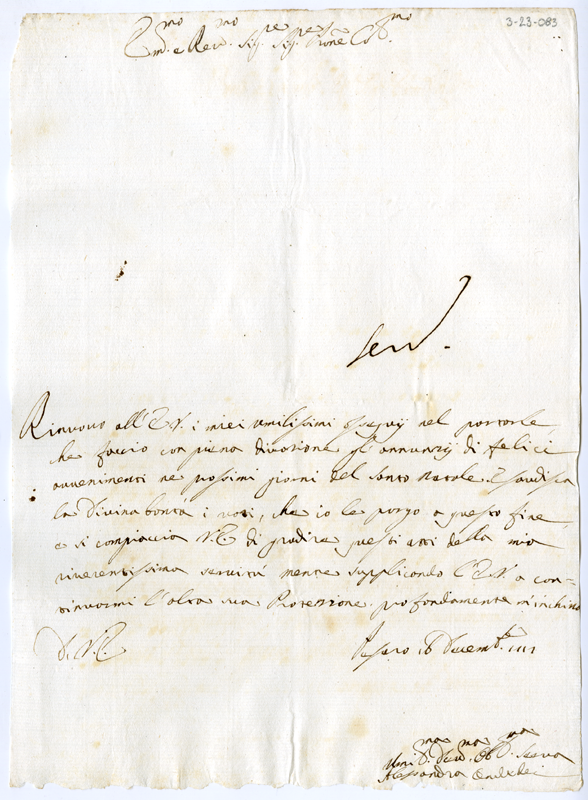 3-23-083
Em.mo e Rev.mo Sig.re Sig.re Prone Col.mo
Serv.
Rinuovo all'E.V. i miei umilissimi ossequij nel portarle,
che faccio con piena divotione gl'annunzij di felici
avvenimenti ne prossimi giorni del Santo Natale. Esaudisca
la Divina bontà i voti, che io le porgo a questo fine,
e si compiaccia V.E. di gradire questi atti della mia
riverentissima servitù mentre supplicando l'E.V. a con-
tinuarmi l'alta sua Protezzione profondamente m'inchino
D. V.E.
Pesaro 16 Decemb.re
Umi.ma Dev.ma Ob.ma Serva
Alessandra